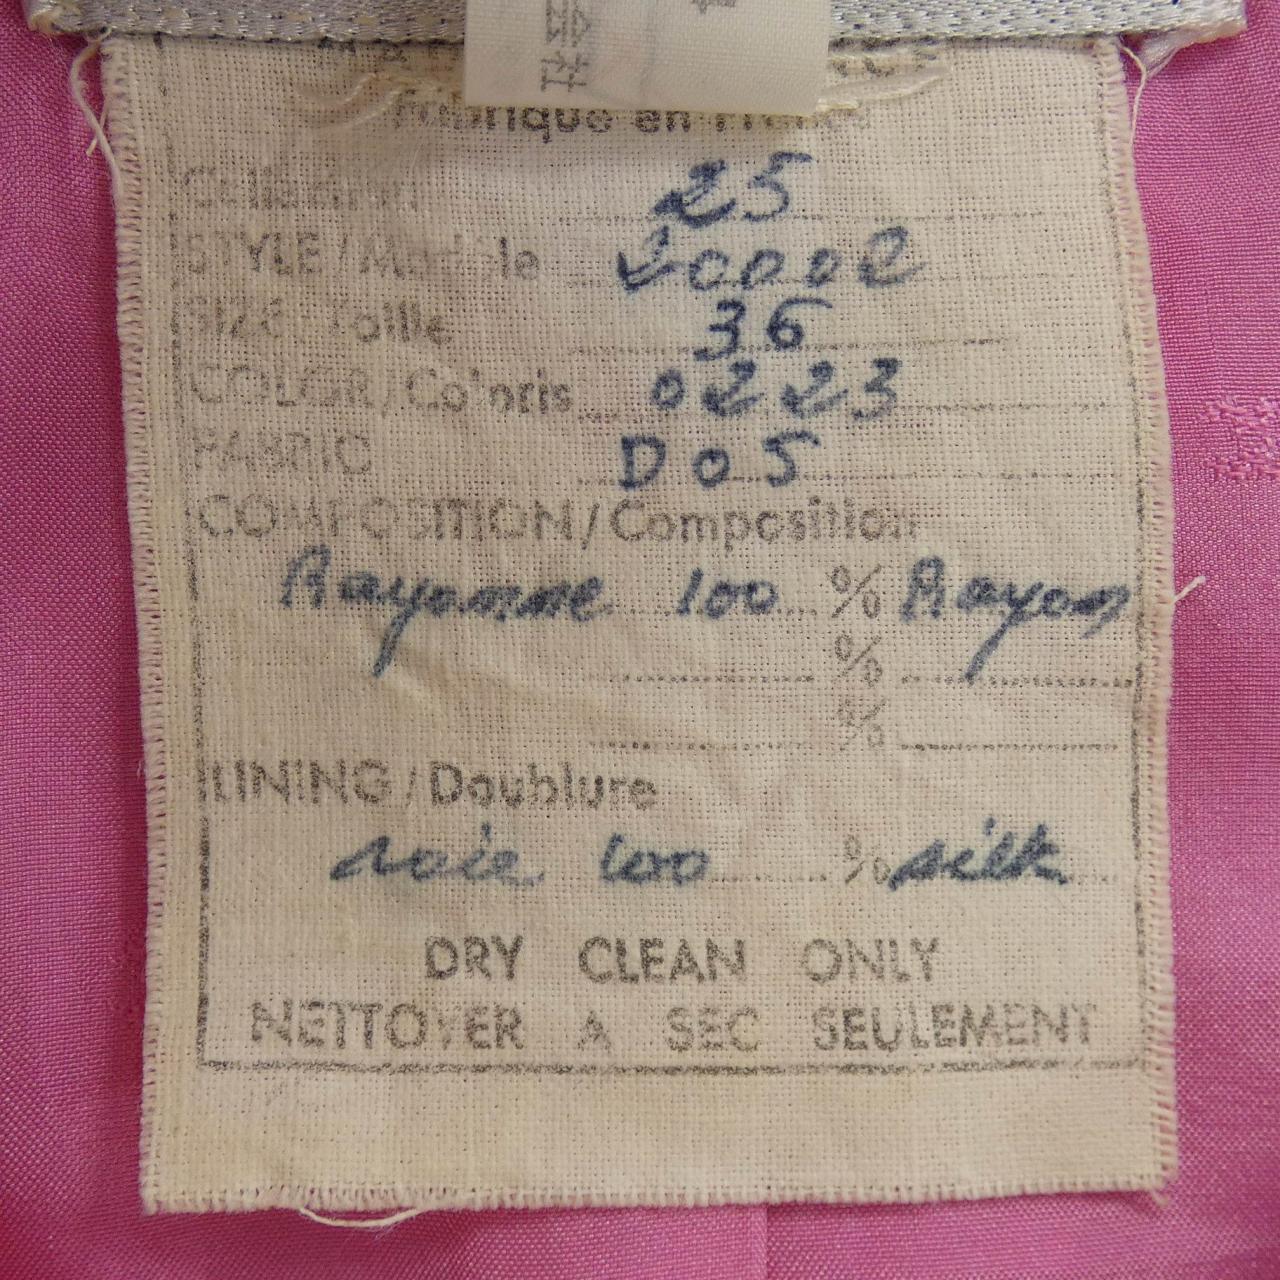 Fabrique en France
Collection 25
STYLE / Modèle 20002
SIZE / Taille 36
COLOR / Coloris 0223
FABRIC D05
COMPOSITION / Composition
Rayonne 100 % Rayon
%
%
LINING / Doublure
soie 100 % silk
DRY CLEAN ONLY
NETTOYER A SEC SEULEMENT